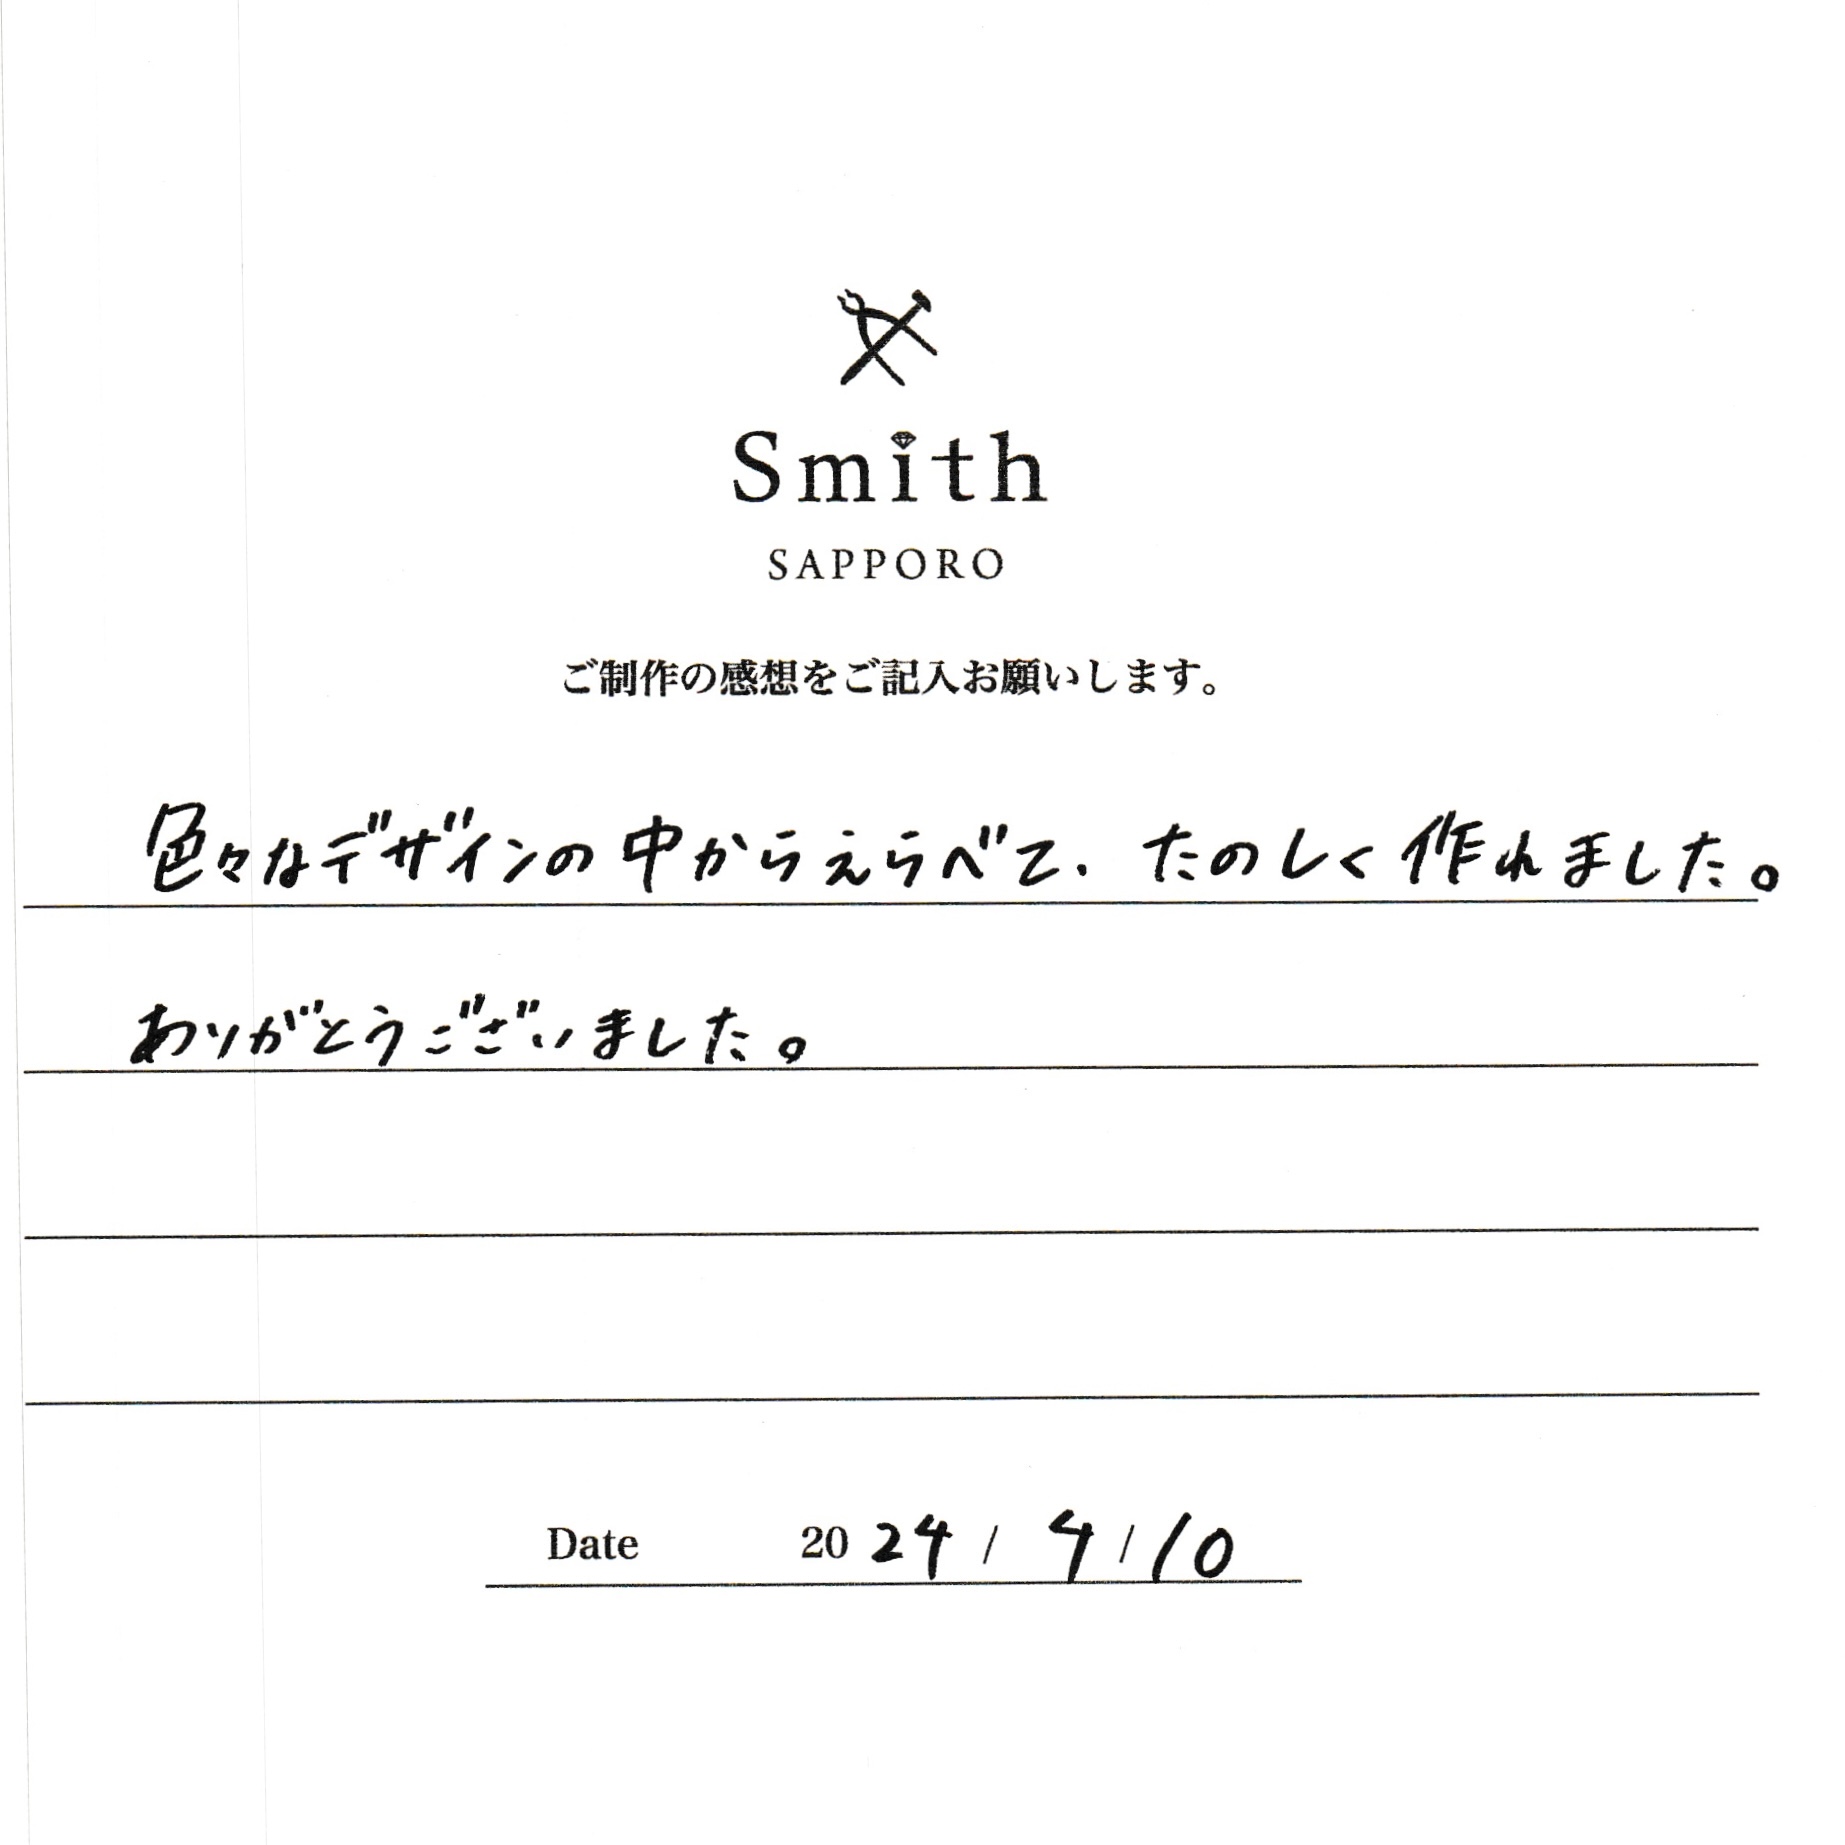 Smith
SAPPORO
ご制作の感想をご記入お願いします。
色々なデザインの中からえらべて、たのしく作れました。
ありがとうございました。
Date 2024 / 4 / 10